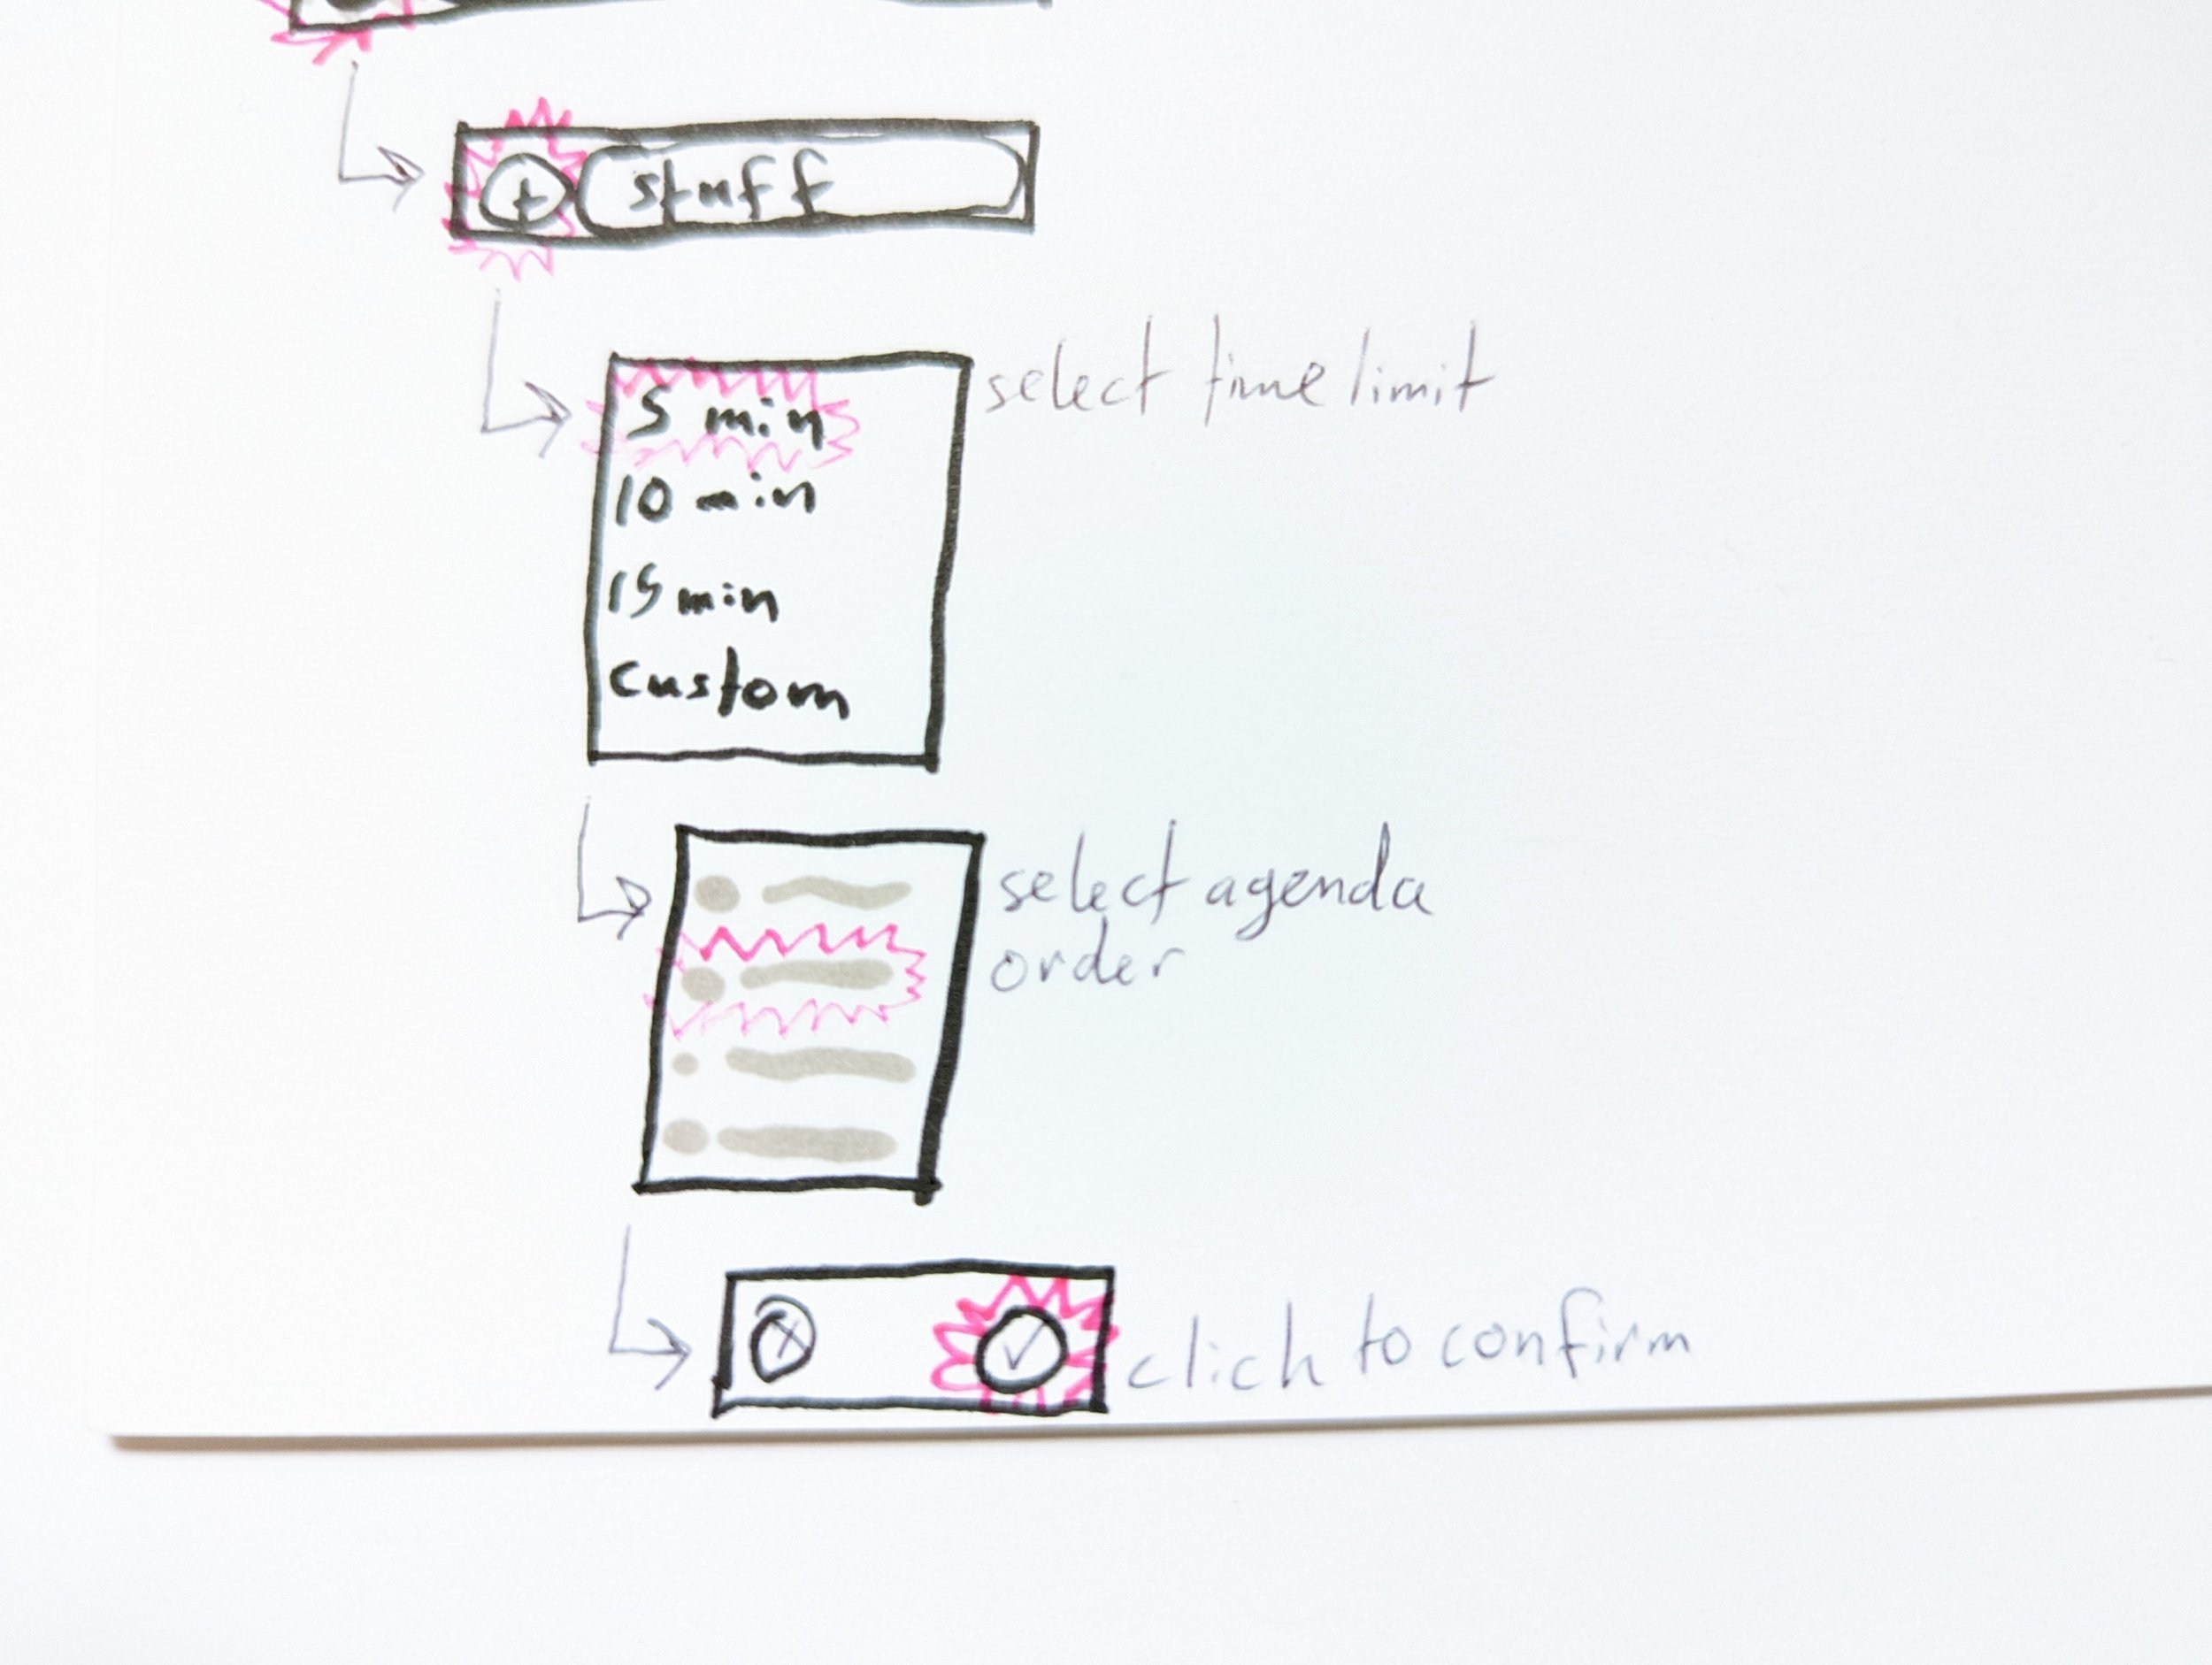 + stuff
select time limit
5 min
10 min
15 min
custom
select agenda
order
x ✓
click to confirm